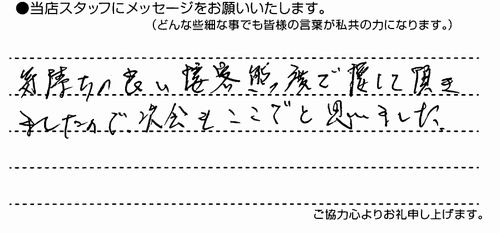 ●当店スタッフにメッセージをお願いいたします。
（どんな些細な事でも皆様の言葉が私共の力になります。）
気持ちの良い接客態度で接して頂き
ましたので次会もここでと思いました。
ご協力心よりお礼申し上げます。